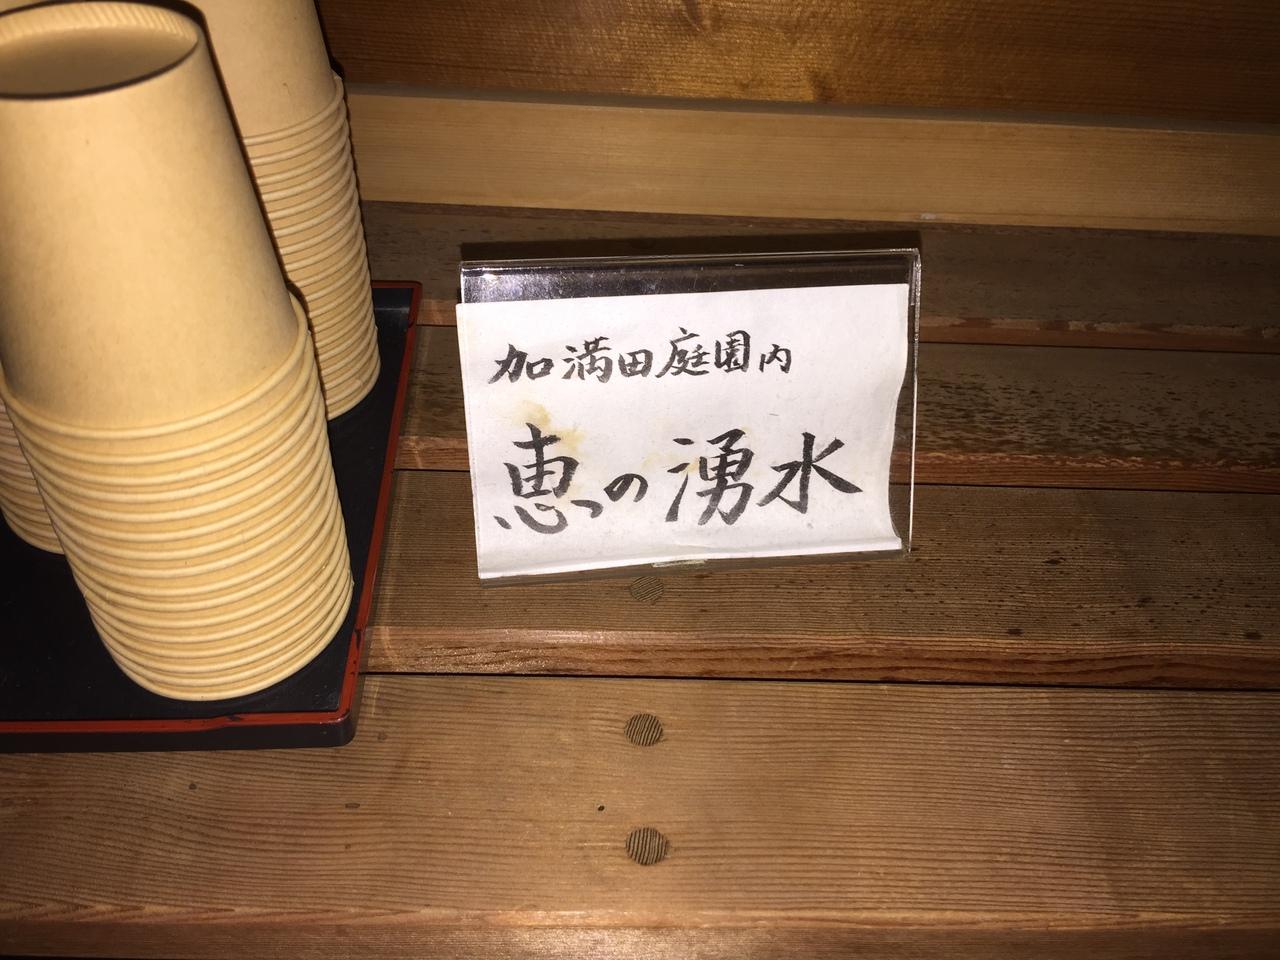 加満田庭園内
恵の湧水